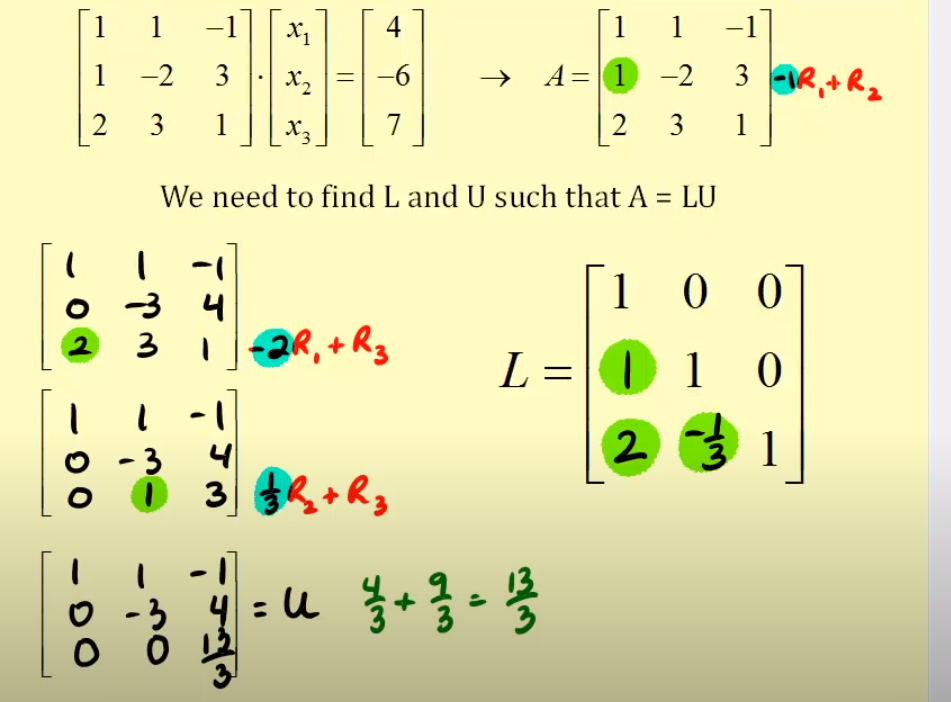 [1 1 -1; 1 -2 3; 2 3 1] · [x₁; x₂; x₃] = [4; -6; 7] → A = [1 1 -1; 1 -2 3; 2 3 1] -1R₁ + R₂
We need to find L and U such that A = LU
[1 1 -1; 0 -3 4; 2 3 1] -2R₁ + R₃
L = [1 0 0; 1 1 0; 2 -1/3 1]
[1 1 -1; 0 -3 4; 0 1 3] 1/3R₂ + R₃
[1 1 -1; 0 -3 4; 0 0 13/3] = U 4/3 + 9/3 = 13/3